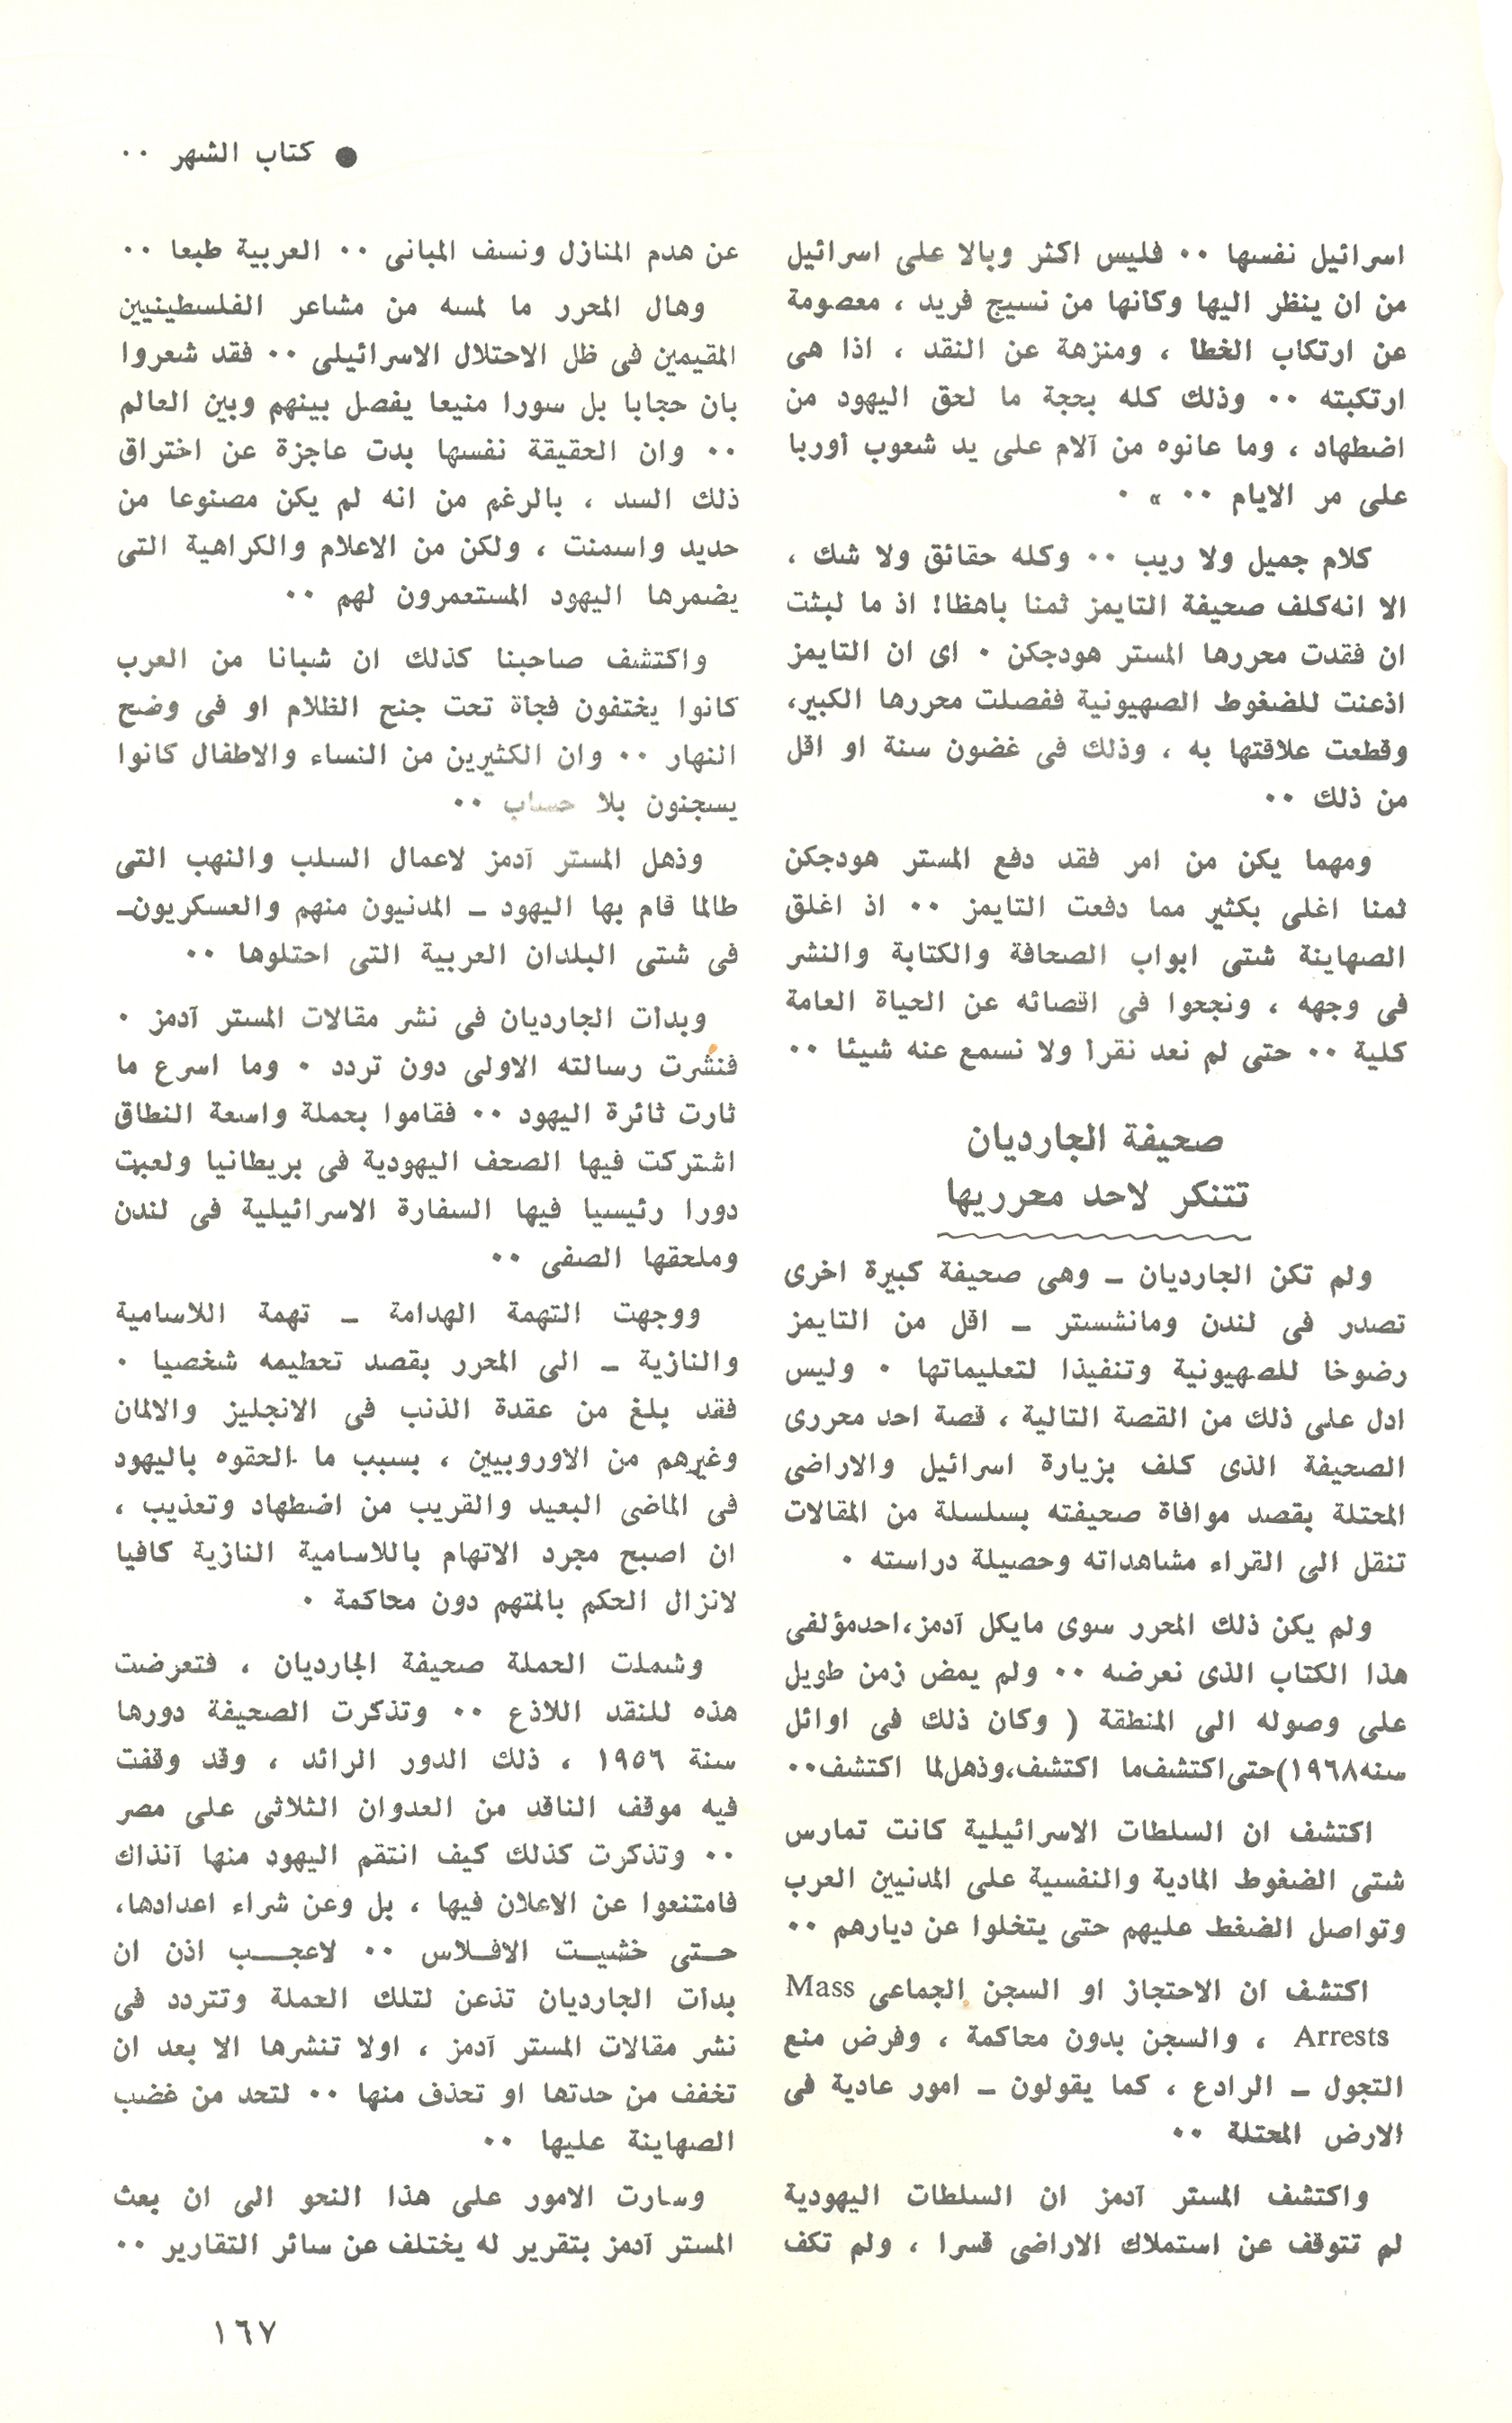 ● كتاب الشهر ٠٠
اسرائيل نفسها ٠٠ فليس اكثر وبالا على اسرائيل
من ان ينظر اليها وكانها من نسيج فريد ، معصومة
عن ارتكاب الخطأ ، ومنزهة عن النقد ، اذا هى
ارتكبته ٠٠ وذلك كله بحجة ما لحق اليهود من
اضطهاد ، وما عانوه من آلام على يد شعوب أوربا
على مر الايام ٠٠ » ٠
كلام جميل ولا ريب ٠٠ وكله حقائق ولا شك ،
الا انه كلف صحيفة التايمز ثمنا باهظا! اذ ما لبثت
ان فقدت محررها المستر هودجكن ٠ اى ان التايمز
اذعنت للضغوط الصهيونية ففصلت محررها الكبير،
وقطعت علاقتها به ، وذلك فى غضون سنة او اقل
من ذلك ٠٠
ومهما يكن من امر فقد دفع المستر هودجكن
ثمنا اغلى بكثير مما دفعت التايمز ٠٠ اذ اغلق
الصهاينة شتى ابواب الصحافة والكتابة والنشر
فى وجهه ، ونجحوا فى اقصائه عن الحياة العامة
كلية ٠٠ حتى لم نعد نقرأ ولا نسمع عنه شيئا ٠٠
صحيفة الجارديان
تتنكر لاحد محرريها
ولم تكن الجارديان ـ وهى صحيفة كبيرة اخرى
تصدر فى لندن ومانشستر ـ اقل من التايمز
رضوخا للصهيونية وتنفيذا لتعليماتها ٠ وليس
ادل على ذلك من القصة التالية ، قصة احد محررى
الصحيفة الذى كلف بزيارة اسرائيل والاراضى
المحتلة بقصد موافاة صحيفته بسلسلة من المقالات
تنقل الى القراء مشاهداته وحصيلة دراسته ٠
ولم يكن ذلك المحرر سوى مايكل آدمز،احدمؤلفى
هذا الكتاب الذى نعرضه ٠٠ ولم يمض زمن طويل
على وصوله الى المنطقة ( وكان ذلك فى اوائل
سنه١٩٦٨)حتى اكتشف ما اكتشف،وذهل لما اكتشف٠٠
اكتشف ان السلطات الاسرائيلية كانت تمارس
شتى الضغوط المادية والنفسية على المدنيين العرب
وتواصل الضغط عليهم حتى يتخلوا عن ديارهم ٠٠
اكتشف ان الاحتجاز او السجن الجماعى Mass
Arrests ، والسجن بدون محاكمة ، وفرض منع
التجول ـ الرادع ، كما يقولون ـ امور عادية فى
الارض المحتلة ٠٠
واكتشف المستر آدمز ان السلطات اليهودية
لم تتوقف عن استملاك الاراضى قسرا ، ولم تكف
عن هدم المنازل ونسف المبانى ٠٠ العربية طبعا ٠٠
وهال المحرر ما لمسه من مشاعر الفلسطينيين
المقيمين فى ظل الاحتلال الاسرائيلى ٠٠ فقد شعروا
بان حجابا بل سورا منيعا يفصل بينهم وبين العالم
٠٠ وان الحقيقة نفسها بدت عاجزة عن اختراق
ذلك السد ، بالرغم من انه لم يكن مصنوعا من
حديد واسمنت ، ولكن من الاعلام والكراهية التى
يضمرها اليهود المستعمرون لهم ٠٠
واكتشف صاحبنا كذلك ان شبانا من العرب
كانوا يختفون فجأة تحت جنح الظلام او فى وضح
النهار ٠٠ وان الكثيرين من النساء والاطفال كانوا
يسجنون بلا حساب ٠٠
وذهل المستر آدمز لاعمال السلب والنهب التى
طالما قام بها اليهود ـ المدنيون منهم والعسكريون ـ
فى شتى البلدان العربية التى احتلوها ٠٠
وبدأت الجارديان فى نشر مقالات المستر آدمز ٠
فنشرت رسالته الاولى دون تردد ٠ وما اسرع ما
ثارت ثائرة اليهود ٠٠ فقاموا بحملة واسعة النطاق
اشتركت فيها الصحف اليهودية فى بريطانيا ولعبت
دورا رئيسيا فيها السفارة الاسرائيلية فى لندن
وملحقها الصفى ٠٠
ووجهت التهمة الهدامة ـ تهمة اللاسامية
والنازية ـ الى المحرر بقصد تحطيمه شخصيا ٠
فقد بلغ من عقدة الذنب فى الانجليز والالمان
وغيرهم من الاوروبيين ، بسبب ما الحقوه باليهود
فى الماضى البعيد والقريب من اضطهاد وتعذيب ،
ان اصبح مجرد الاتهام باللاسامية النازية كافيا
لانزال الحكم بالمتهم دون محاكمة ٠
وشملت الحملة صحيفة الجارديان ، فتعرضت
هذه للنقد اللاذع ٠٠ وتذكرت الصحيفة دورها
سنة ١٩٥٦ ، ذلك الدور الرائد ، وقد وقفت
فيه موقف الناقد من العدوان الثلاثى على مصر
٠٠ وتذكرت كذلك كيف انتقم اليهود منها آنذاك
فامتنعوا عن الاعلان فيها ، بل وعن شراء اعدادها،
حتى خشيت الافلاس ٠٠ لاعجب اذن ان
بدأت الجارديان تذعن لتلك الحملة وتتردد فى
نشر مقالات المستر آدمز ، اولا تنشرها الا بعد ان
تخفف من حدتها او تحذف منها ٠٠ لتحد من غضب
الصهاينة عليها ٠٠
وسارت الامور على هذا النحو الى ان بعث
المستر آدمز بتقرير له يختلف عن سائر التقارير ٠٠
١٦٧